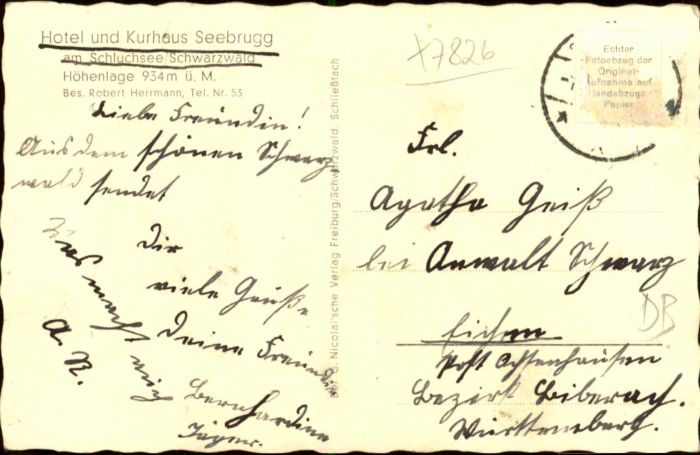 Hotel und Kurhaus Seebrugg
am Schluchsee/Schwarzwald
Höhenlage 934 m ü. M.
Bes. Robert Herrmann, Tel. Nr. 53
Liebe Freundin!
Aus dem schönen Schwarz
wald sendet
Dir
viele Grüße
Deine Freundin
Bernhardine
Jäger.
Was macht
A. R.
Der B. Nicolai'sche Verlag Freiburg Schwarzwald, Schließfach
x7826
Echter
Fotoabzug der
Original-
aufnahme auf
Handabzugs-
Papier
Frl.
Agatha Geiß
bei Anwalt Schwarz
Eichen
Post Ochsenhausen
Bezirk Biberach.
Württemberg.
DB